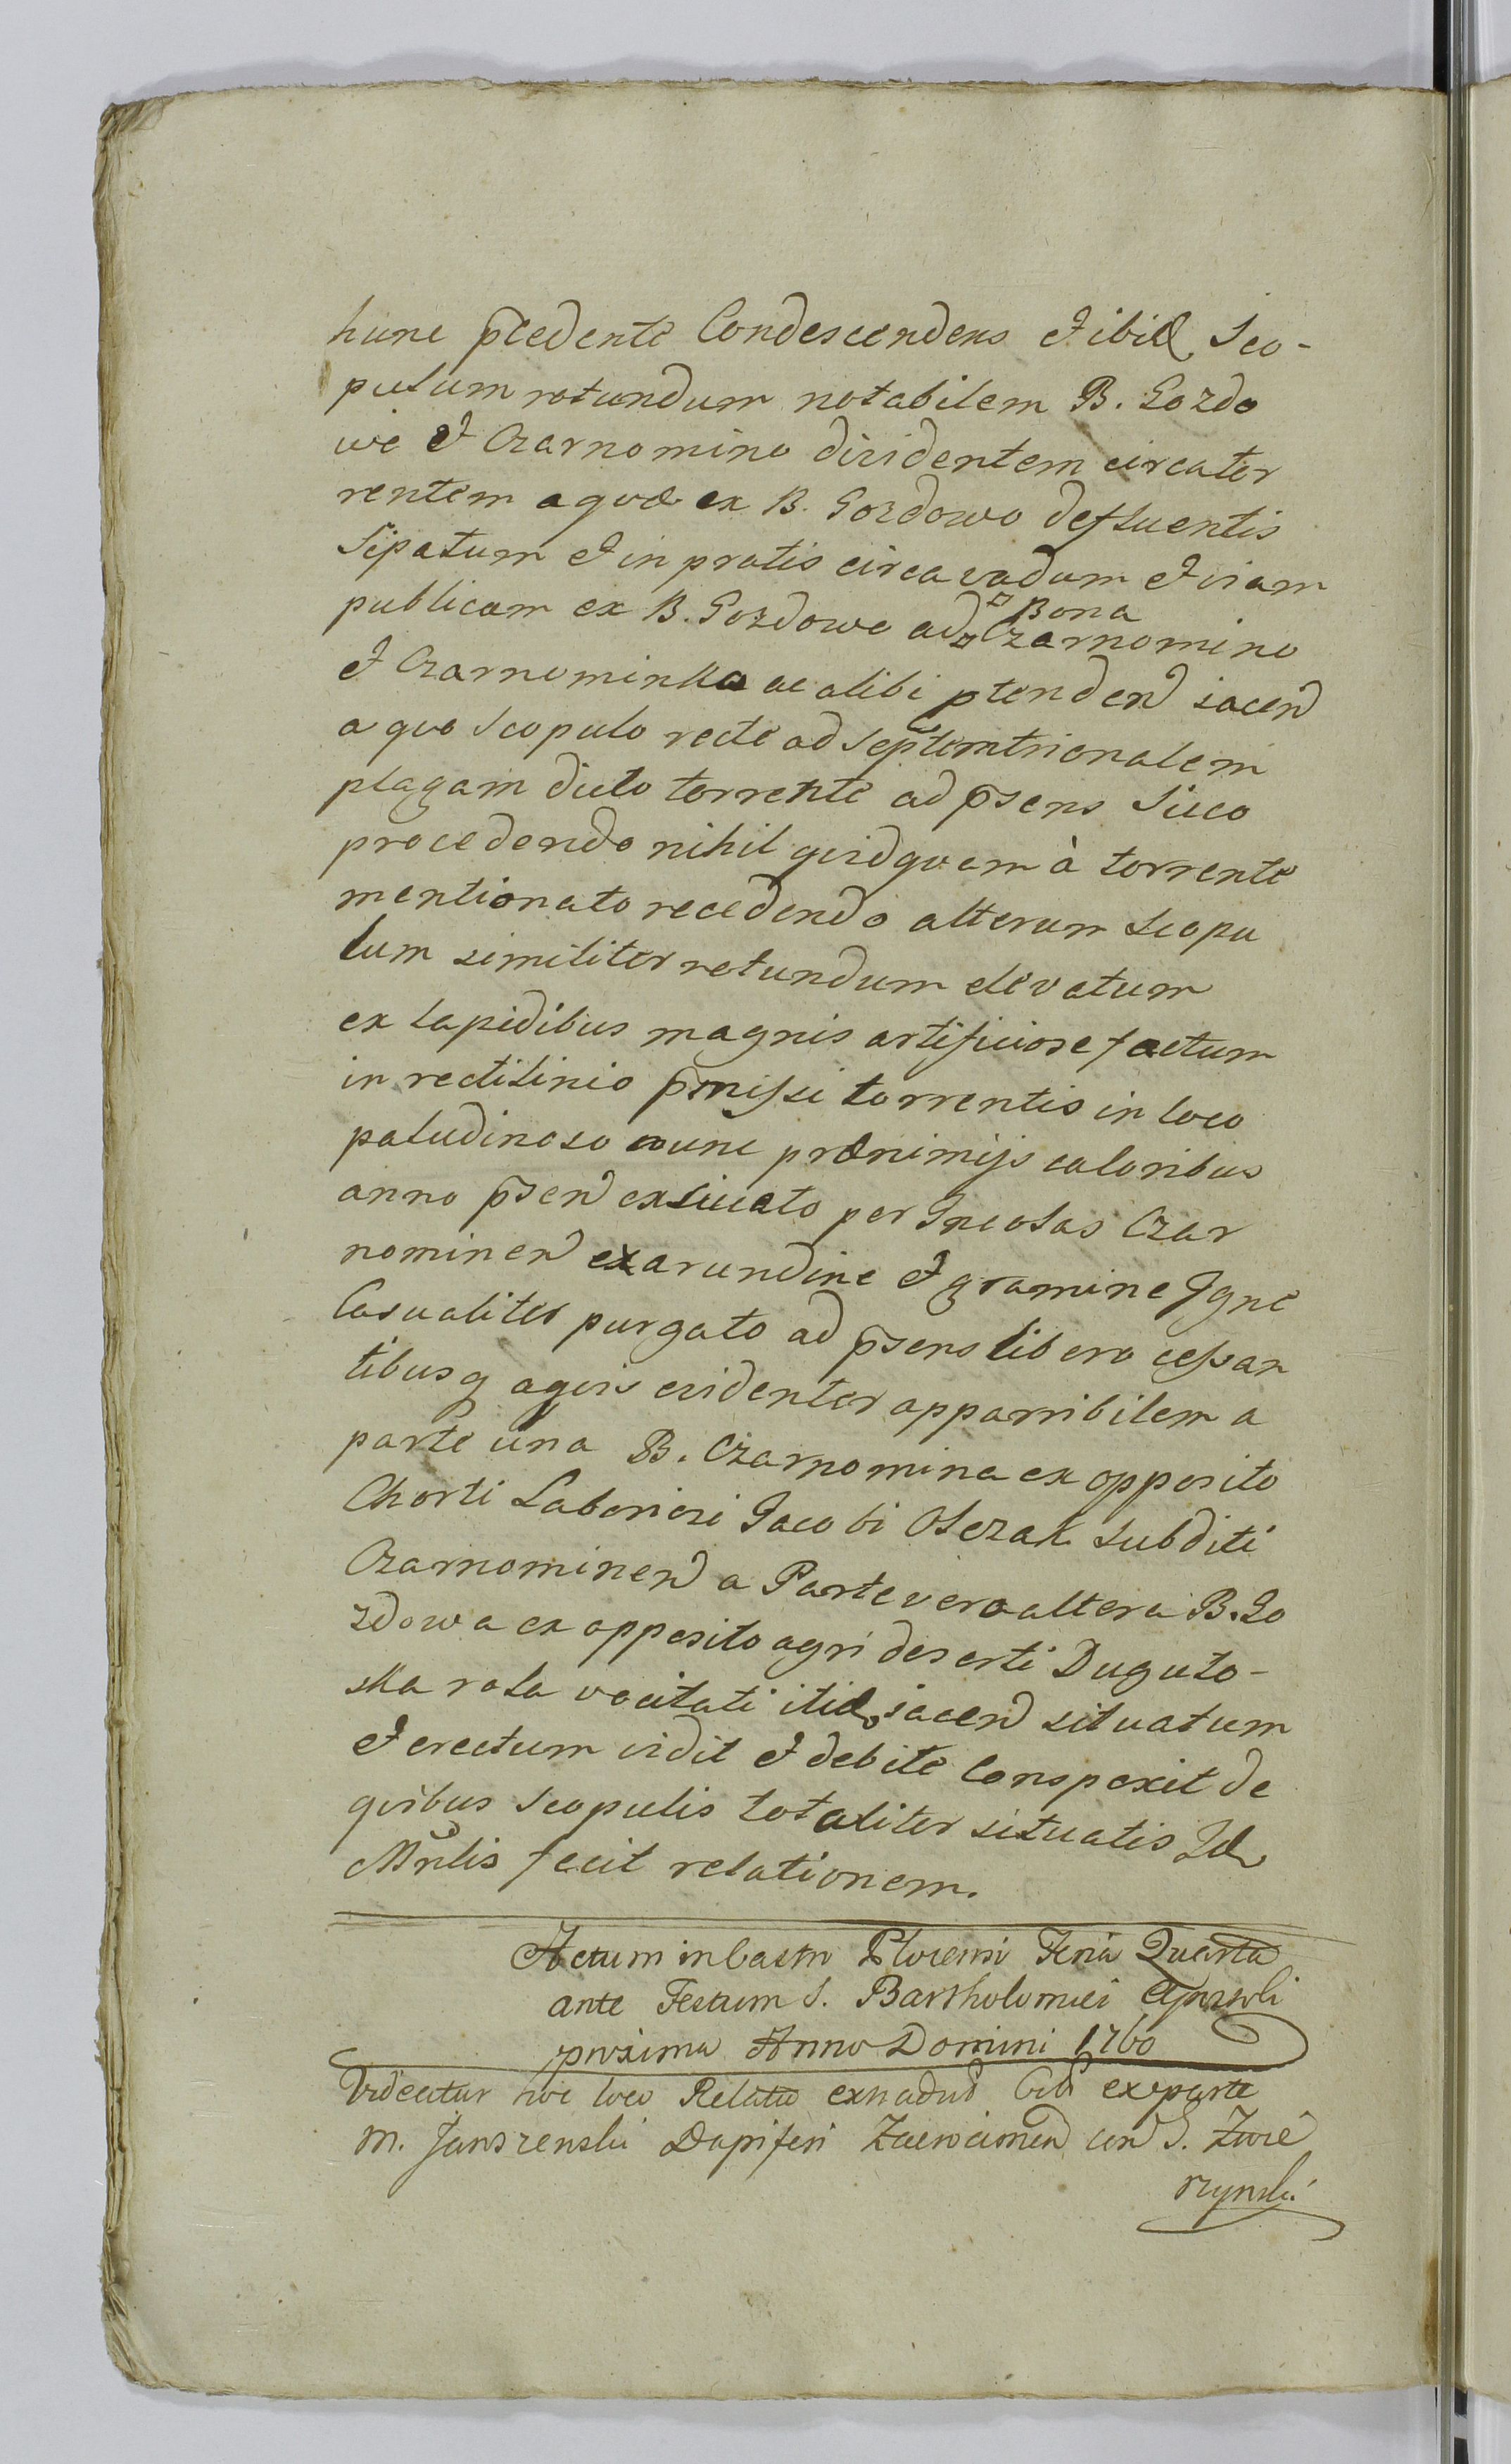 hunc pcedente Condescendens et ibid Sco-
pulum rotundum notabilem B. Gozdo
we et Czarnomino dividentem circa tor
rentem aquæ ex B. Gozdowo defluentis
Sipatum et in pratis circa vadum et viam
publicam ex B. Gozdowo ad Bona Czarnomino
et Czarnominka ac alibi ptenden iacen
a quo Scopulo recte ad Septemtrionalem
plagam dicto torrente ad psens Sicco
procedendo nihil quidquam à torrente
mentionato recedendo alterum Scopu
lum similiter rotundum elevatum
ex lapidibus magnis artificiose factum
in rectilinio pmissi torrentis in loco
paludinoso nunc præ nimijs caloribus
anno psen exsiccato per Incolas Czar
nominen ex arundine et gramine Igne
Casualiter purgato ad psens libero cessan
tibusq aquis evidenter apparibilem a
parte una B. Czarnomina ex opposito
Chorti Laboriosi Jacobi Olszak subditi
Czarnominen a Parte vero altera B. Go
zdowa ex opposito agri deserti Dugoto-
ska rola vocitati itid iacen situatum
et erectum vidit et debite Conspexit de
quibus Scopulis totaliter situatis Id
Mnlis fecit relationem.
Actum in Castro Plocensi Feria Quarta
ante Festum S. Bartholomiei Apostoli
proxima Anno Domini 1760
Videatur hoc loco Relatio ex parte
M. Dapiferi S. Zwie
rzynski